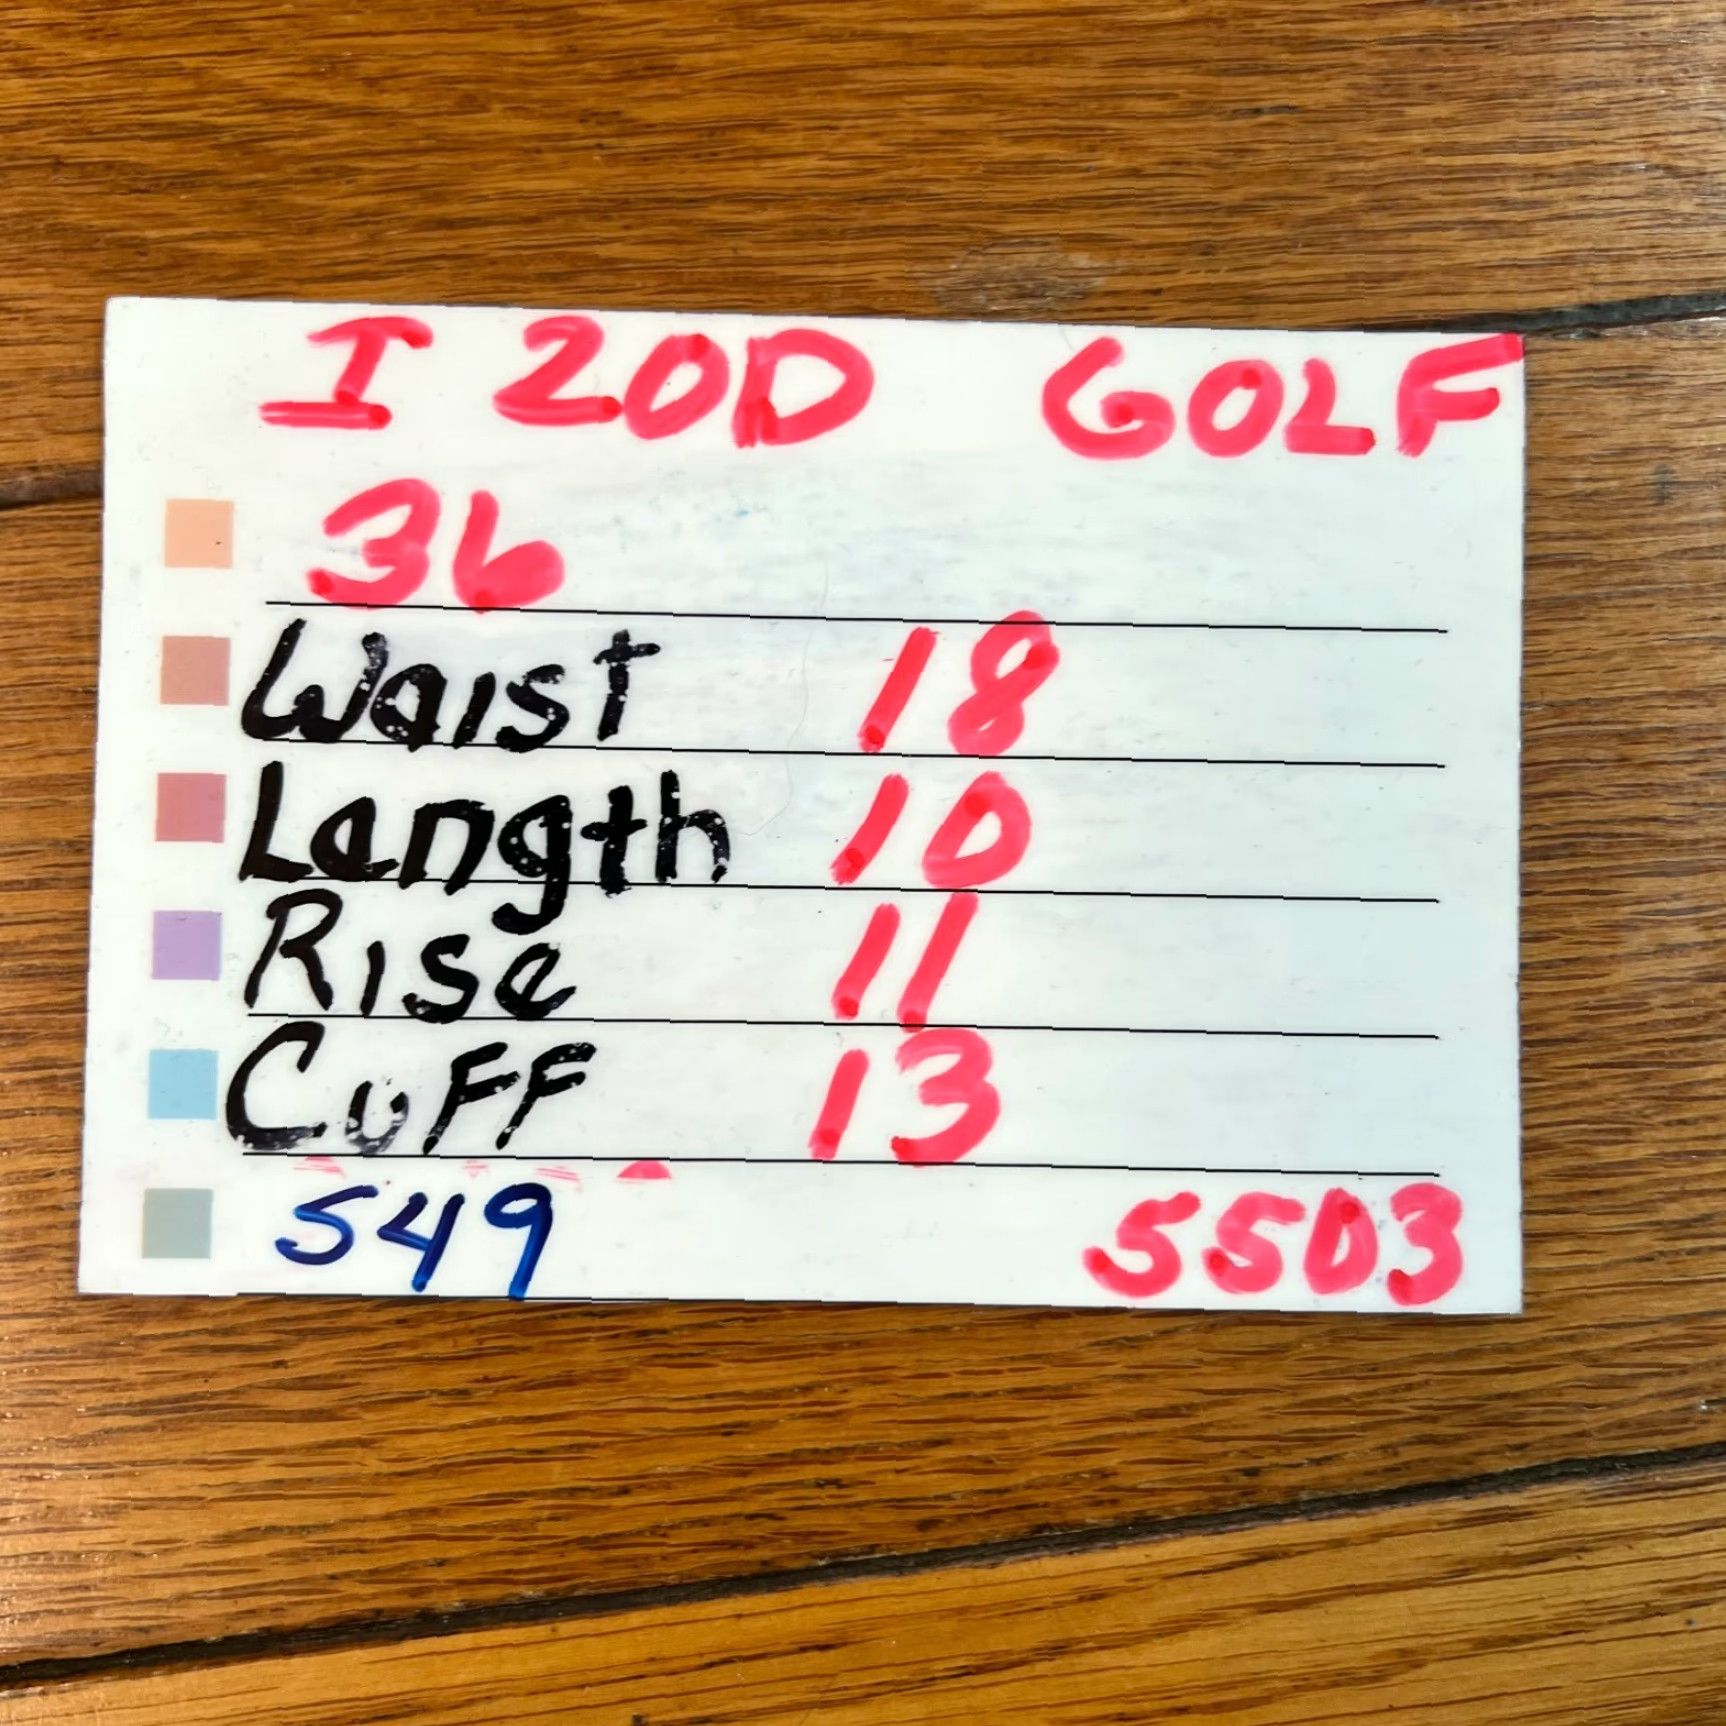 IZOD GOLF
36
Waist 18
Length 10
Rise 11
Cuff 13
549 5503